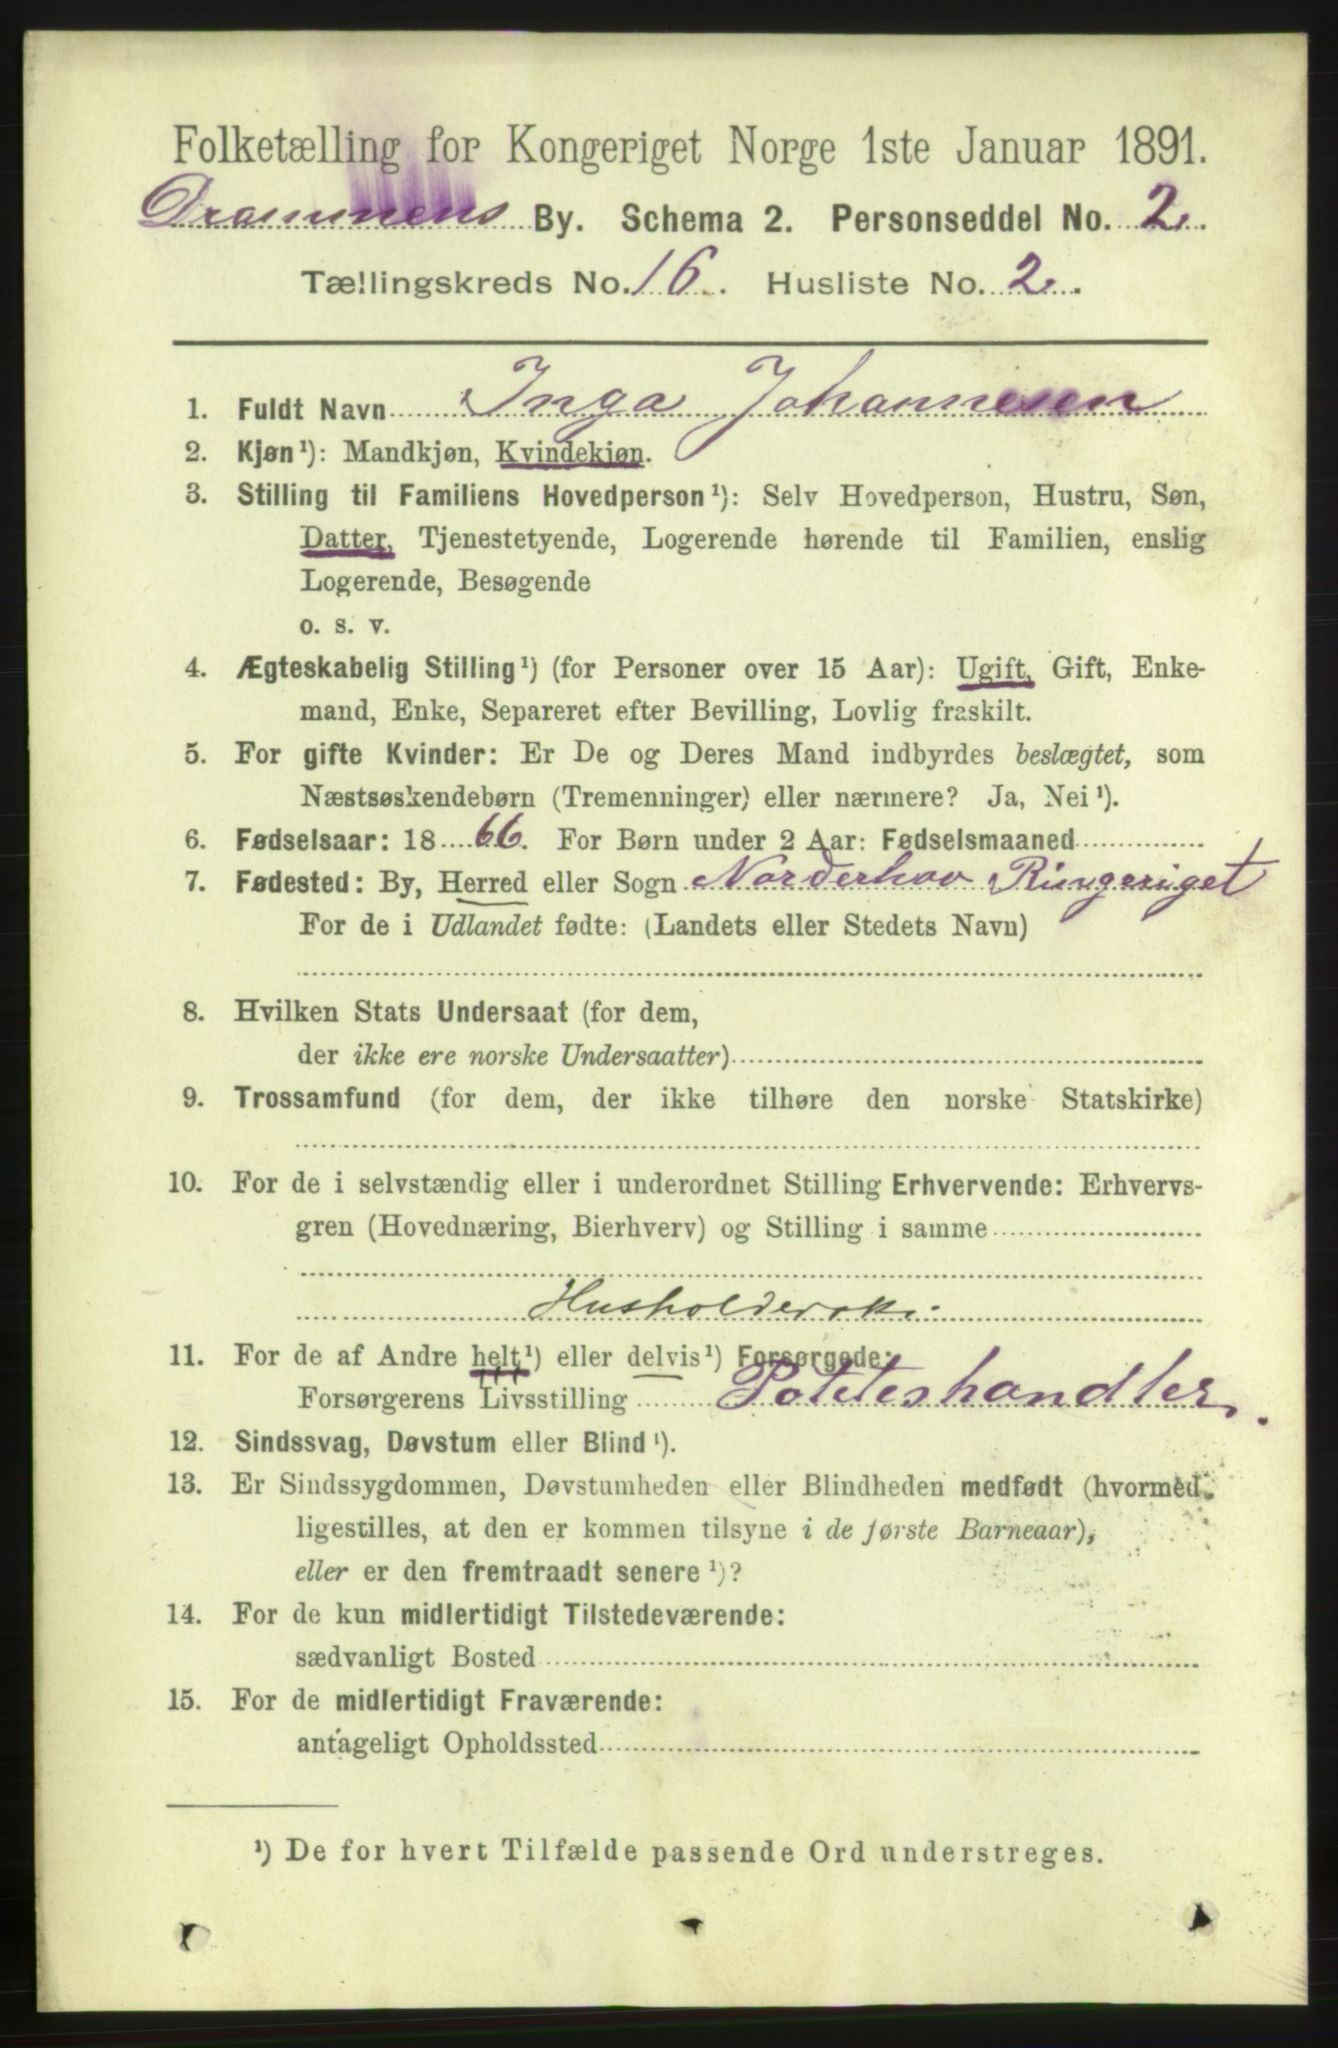 Folketælling for Kongeriget Norge 1ste Januar 1891.
Drammens By. Schema 2. Personseddel No. 2.
Tællingskreds No. 16. Husliste No. 2.
1. Fuldt Navn Inga Johannesen
2. Kjøn¹): Mandkjøn, Kvindekjøn.
3. Stilling til Familiens Hovedperson¹): Selv Hovedperson, Hustru, Søn,
Datter, Tjenestetyende, Logerende hørende til Familien, enslig
Logerende, Besøgende
o. s. v.
4. Ægteskabelig Stilling¹) (for Personer over 15 Aar): Ugift, Gift, Enke-
mand, Enke, Separeret efter Bevilling, Lovlig fraskilt.
5. For gifte Kvinder: Er De og Deres Mand indbyrdes beslægtet, som
Næstsøskendebørn (Tremenninger) eller nærmere? Ja, Nei¹).
6. Fødselsaar: 1866. For Børn under 2 Aar: Fødselsmaaned
7. Fødested: By, Herred eller Sogn Norderhov Ringeriget
For de i Udlandet fødte: (Landets eller Stedets Navn)
8. Hvilken Stats Undersaat (for dem,
der ikke ere norske Undersaatter)
9. Trossamfund (for dem, der ikke tilhøre den norske Statskirke)
10. For de i selvstændig eller i underordnet Stilling Erhvervende: Erhvervs-
gren (Hovednæring, Bierhverv) og Stilling i samme
Husholderske
11. For de af Andre helt¹) eller delvis¹) Forsørgede:
Forsørgerens Livsstilling Poteteshandler.
12. Sindssvag, Døvstum eller Blind¹).
13. Er Sindssygdommen, Døvstumheden eller Blindheden medfødt (hvormed
ligestilles, at den er kommen tilsyne i de første Barneaar),
eller er den fremtraadt senere¹)?
14. For de kun midlertidigt Tilstedeværende:
sædvanligt Bosted
15. For de midlertidigt Fraværende:
antageligt Opholdssted
¹) De for hvert Tilfælde passende Ord understreges.